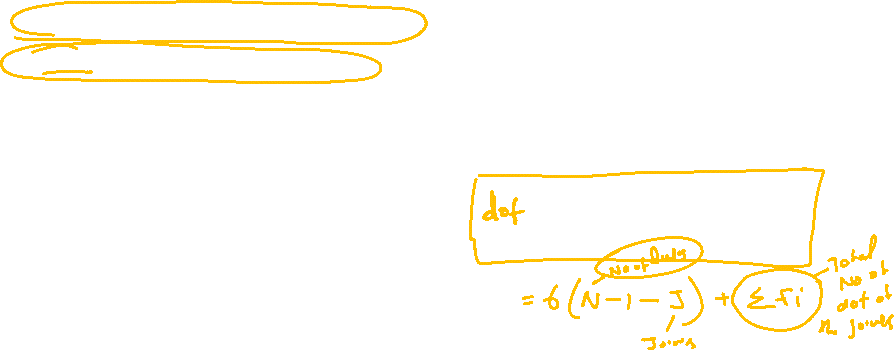 dof
No of links
= 6 (N - 1 - J) + Σ fi
Joints
Total
No of
dof of
the joints